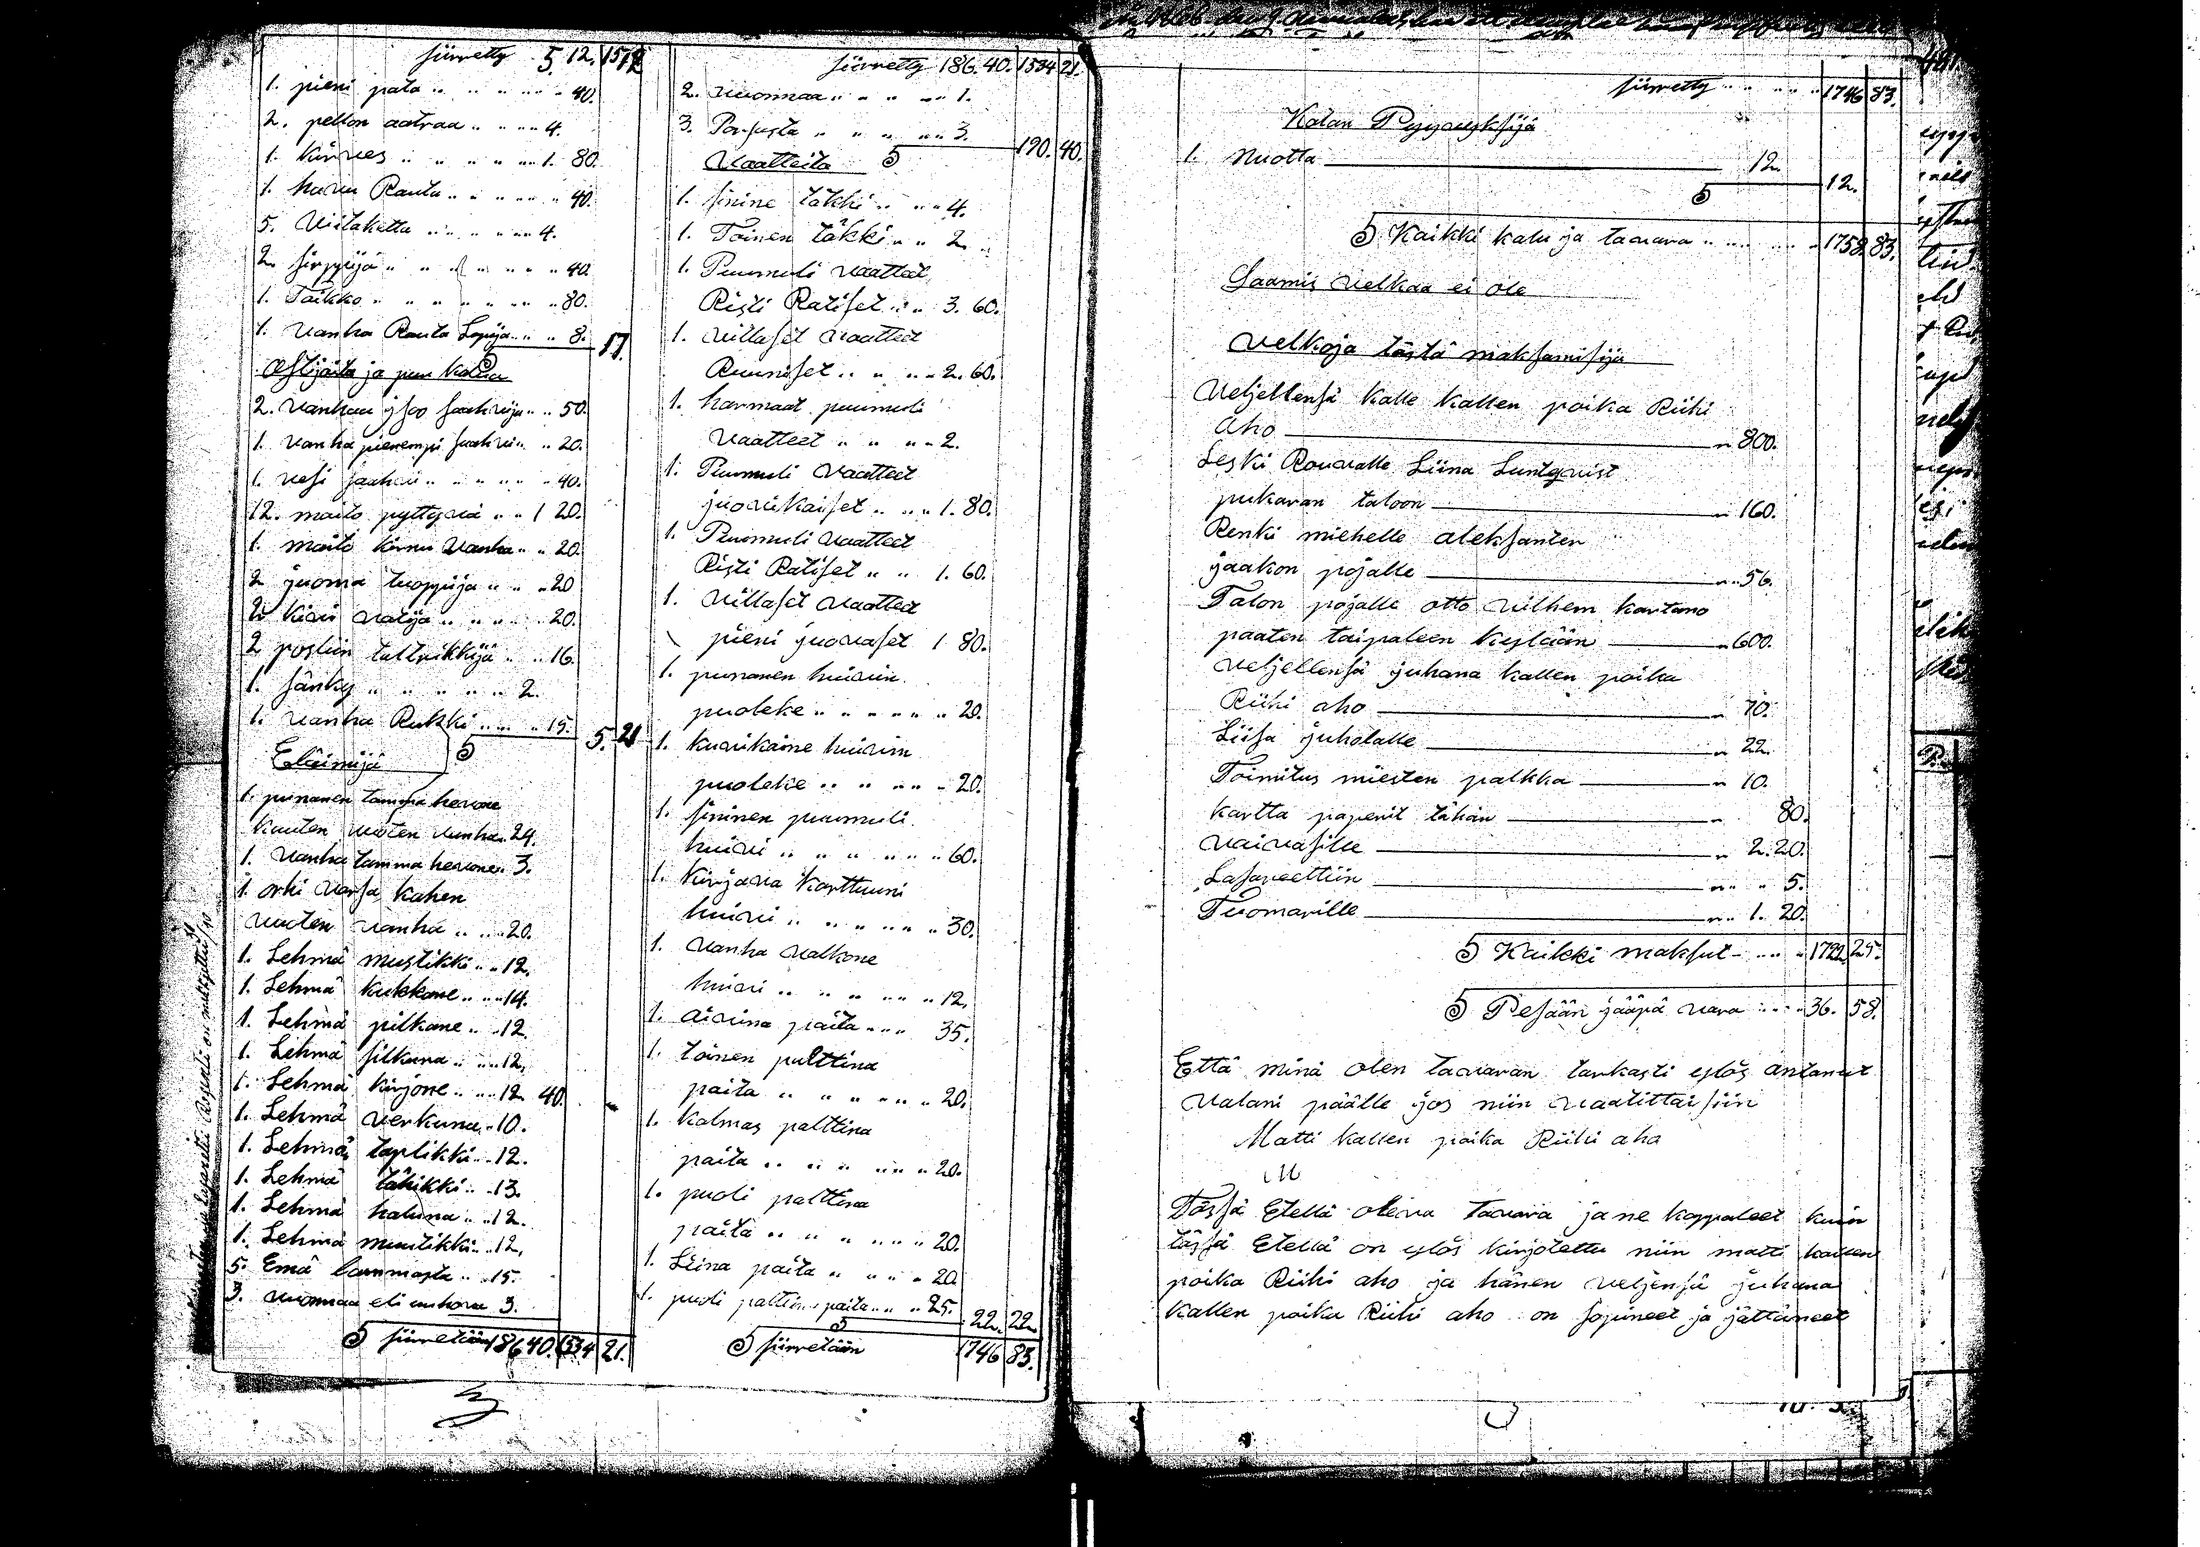 siirretty 5. 12. 1512
1. pieni pata „ „ „ „ „ 40.
2. pellon aatraa „ „ „ „ 4.
1. kirves „ „ „ „ „ 1. 80.
1. haru Rauta „ „ „ „ „ 40.
5. Viitaketta „ „ „ „ 4.
2. sirppijä „ „ „ „ „ 40.
1. Taikko „ „ „ „ „ „ 80.
1. Vanha Rauta Lapija „ „ 8. 17.
Astijoita ja puu kaluja
2. Vanhaa isoo saahvija „ „ 50.
1. Vanha pienempi saahvi „ „ 20.
1. vesi saahvi „ „ „ „ „ 40.
12. maito pyttyvä „ „ 1 20.
1. maito kirnu Vanha „ „ 20.
2 juoma tuoppija „ „ „ 20
2 kivi vatija „ „ „ „ 20.
2 posliin tallrikkijä „ „ 16.
1. sänky „ „ „ „ „ 2.
1. Vanha Rukki „ „ „ 15. 5. 21
Eläimijä S
1. punanen tamma hevone
kauten vuoten vanha „ 24.
1. Vanha tamma hevone „ 3.
1. orhi Varsa kahen
vuoten vanha „ „ „ 20.
1. Lehmä mustikki „ „ 12.
1. Lehmä kukkone „ „ 14.
1. Lehmä pilkane „ „ 12.
1. Lehmä silkuna „ „ 12.
1. Lehmä kirjone „ „ 12. 40.
1. Lehmä verkuna „ 10.
1. Lehmä täplikki „ 12.
1. Lehmä tähikki „ 13.
1. Lehmä haluna „ „ 12.
1. Lehmä muutikki „ 12.
5. Emä lammasta „ „ 15.
3. vuonaa eli 3.
S siirretään 186 40. 1534 21.
siirretty 186. 40. 1534 21.
2. vuonnaa „ „ „ „ 1.
3. Porsasta „ „ „ „ 3. 190. 40.
Vaatteita S
1. sinine täkki „ „ „ 4.
1. Toinen täkki „ „ 2.
1. Puumuli vaatteet
Risti Ratiset „ „ 3. 60.
1. villaset vaatteet
Ruuniset „ „ „ 2. 60.
1. harmaat puumuli
vaatteet „ „ „ „ 2.
1. Puumuli vaatteet
juovikaiset „ „ „ 1. 80.
1. Puumuli vaatteet
Risti Ratiset „ „ 1. 60.
1. villaset vaatteet
pieni juovaset 1 80.
1. punanen huivin
puoleke „ „ „ „ „ 20.
1. kuvikaine huivin
puoleke „ „ „ „ 20.
1. sininen puumuli
huivi „ „ „ „ „ 60.
1. Kirjava karttuuni
huivi „ „ „ „ „ 30.
1. vanha valkone
huivi „ „ „ „ 12.
1. aivina paita „ „ 35.
1. toinen palttina
paita „ „ „ „ „ 20.
1. kolmas palttina
paita „ „ „ „ „ 20.
1. puoli palttina
paita „ „ „ „ „ 20.
1. Liina paita „ „ „ 20.
1. puoli palttina paita „ „ 25. 22. 22.
S siirretään 1746 83.
siirretty „ „ „ „ 1746 83.
Kalan Pyyvyksijä
1. Nuotta 12. 12.
S
S Kaikki kalu ja tavara „ „ „ „ 1758. 83.
Saamis velkaa ei ole
Velkoja tästä maksamisija
Veljellensä kalle kallen poika Riihi
Aho „ 800.
Leski Rouvalle Liina Luntqvist
pukaran taloon „ 160.
Renki miehelle aleksanten
jaakon pojalle „ 56.
Talon pojalle otto vilhem kartano
paaten taipaleen kylään „ 600.
veljellensä juhana kallen poika
Riihi aho „ 70.
Liisa juholalle „ 22.
Toimitus miesten palkka „ 10.
kartta paperit tähän „ 80.
vaivasille „ 2. 20.
Lasareettiin „ „ 5.
Tuomarille „ 1. 20.
S Kaikki maksut „ „ „ 1722. 25.
S Pesään jääpä vara „ „ 36. 58.
Että minä olen tavaran tarkasti ylös antanut
valani päälle jos niin vaatittaisiin
Matti kallen poika Riihi aho
M
Tässä Etellä oleva tavara ja ne kappaleet kuin
tässä Etellä on ylös kirjotettu niin matti kallen
poika Riihi aho ja hänen veljensä juhana
kallen poika Riihi aho on sopineet ja jättäneet